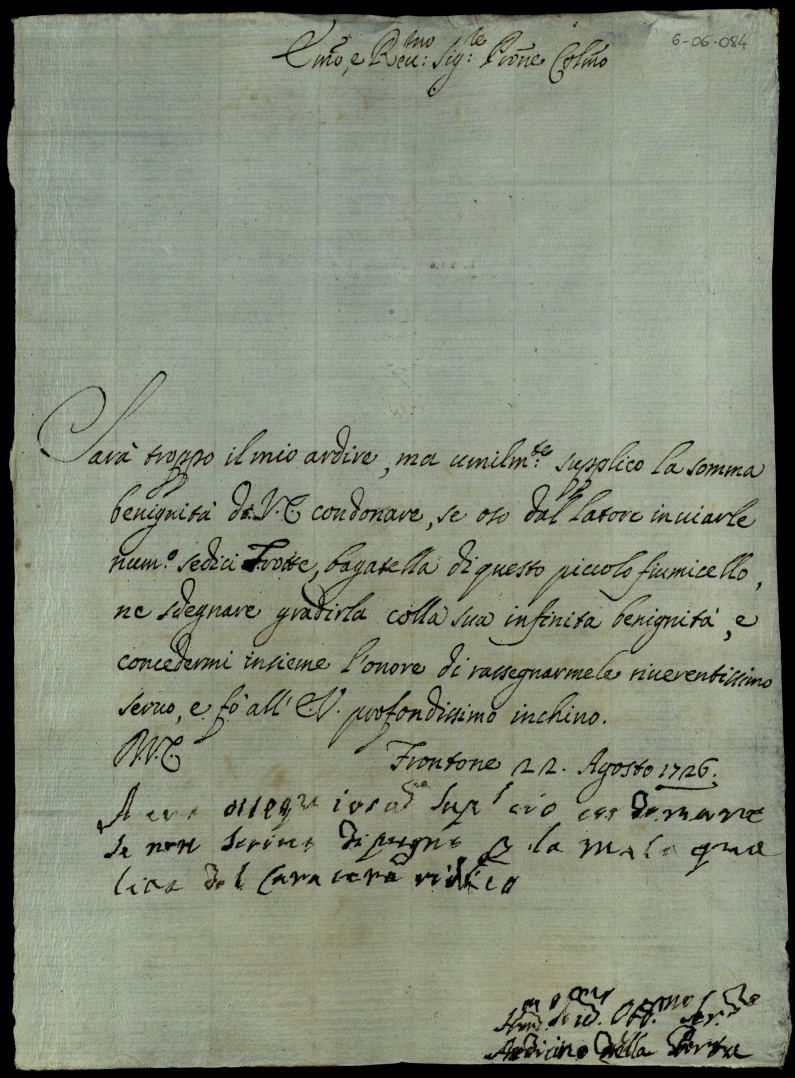 6-06-084
Emo, e Reu:mo Sig:re Prone Colmo
Sarà troppo il mio ardire, ma umilm:te supplico la somma
benignità di V.E condonare, se oso dal latore inuiarle
num.o sedici Trotte, bagatella di questo piccolo fiumicello,
ne sdegnare gradirla colla sua infinita benignità, e
concedermi insieme l'onore di rassegnarmele riuerentissimo
seruo, e fò all' E.V. profondissimo inchino.
D.V.E Frontone 22. Agosto 1726.
condonarme
se non scriuo di pugno p la mala qua
lita del Carattere
Obb.mo Ser.re
Ardicino della Porta